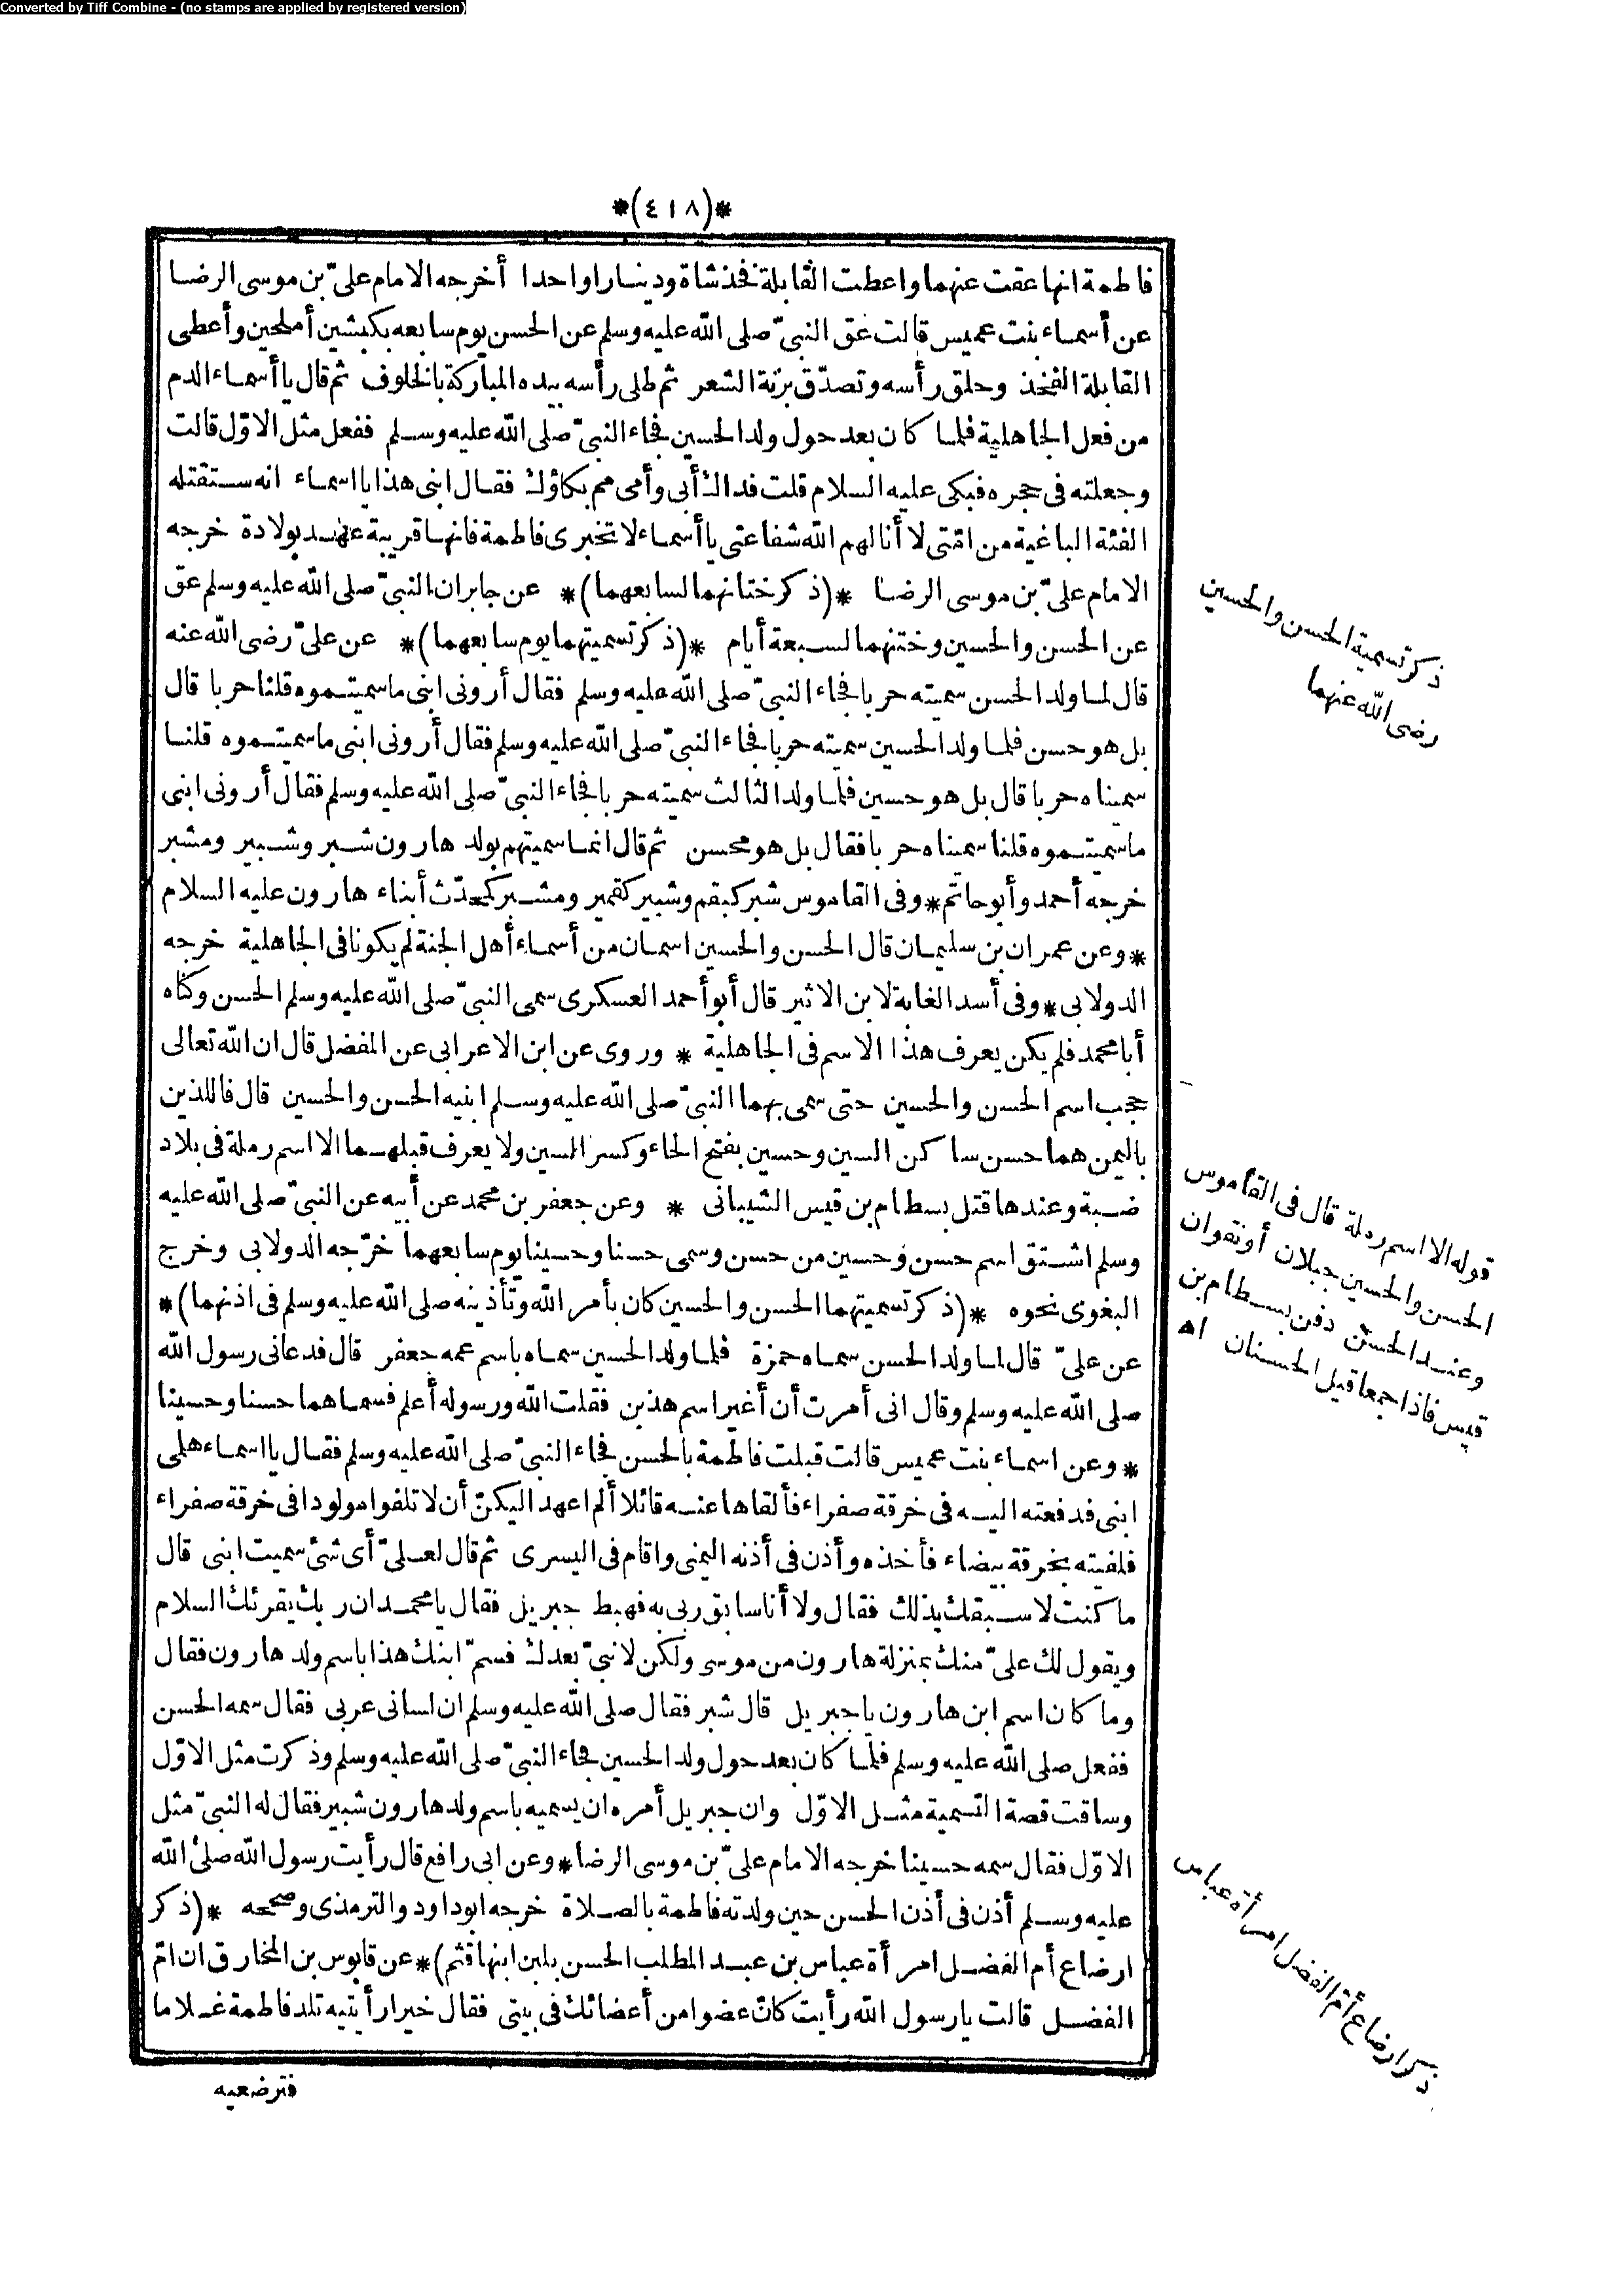 Converted by Tiff Combine - (no stamps are applied by registered version)
*(٤١٨)*
فاطمة انها عقت عنهما واعطت القابلة فخذ شاة ودينارا واحدا أخرجه الامام علىّ بن موسى الرضا
عن أسماء بنت عميس قالت عق النبىّ صلى الله عليه وسلم عن الحسن يوم سابعه بكبشين أملحين وأعطى
القابلة الفخذ وحلق رأسه وتصدّق بزنة الشعر ثم طلى رأسه بيده المباركة بالخلوف ثم قال يا أسماء الدم
من فعل الجاهلية فلما كان بعد حول ولد الحسين فجاء النبىّ صلى الله عليه وسلم ففعل مثل الاوّل قالت
وجعلته فى حجره فبكى عليه السلام قلت فداك أبى وأمى مم بكاؤك فقال ابنى هذا يا اسماء انه ستقتله
الفئة الباغية من امّتى لا أنالهم الله شفاعتى يا أسماء لا تخبرى فاطمة فانها قريبة عهد بولادة خرجه
الامام علىّ بن موسى الرضا *(ذكر ختانهما لسابعهما)* عن جابر ان النبىّ صلى الله عليه وسلم عق
عن الحسن والحسين وختنهما لسبعة أيام *(ذكر تسميتهما يوم سابعهما)* عن علىّ رضى الله عنه
قال لما ولد الحسن سميته حربا فجاء النبىّ صلى الله عليه وسلم فقال أرونى ابنى ما سميتموه قلنا حربا قال
بل هو حسن فلما ولد الحسين سميته حربا فجاء النبىّ صلى الله عليه وسلم فقال أرونى ابنى ما سميتموه قلنا
سميناه حربا قال بل هو حسين فلما ولد الثالث سميته حربا فجاء النبىّ صلى الله عليه وسلم فقال أرونى ابنى
ما سميتموه قلنا سميناه حربا فقال بل هو محسن ثم قال انما سميتهم بولد هارون شبر وشبير ومشبر
خرجه أحمد وأبو حاتم * وفى القاموس شبر كبقم وشبير كقمير ومشبر كمحدّث أبناء هارون عليه السلام
* وعن عمران بن سليمان قال الحسن والحسين اسمان من أسماء أهل الجنة لم يكونا فى الجاهلية خرجه
الدولابى * وفى أسد الغابة لابن الاثير قال أبو أحمد العسكرى سمى النبىّ صلى الله عليه وسلم الحسن وكناه
أبا محمد فلم يكن يعرف هذا الاسم فى الجاهلية * وروى عن ابن الاعرابى عن المفضل قال ان الله تعالى
حجب اسم الحسن والحسين حتى سمى بهما النبىّ صلى الله عليه وسلم ابنيه الحسن والحسين قال فاللذين
باليمن هما حسن ساكن السين وحسين بفتح الحاء وكسر السين ولا يعرف قبلهما الا اسم رملة فى بلاد
ضبة وعندها قتل بسطام بن قيس الشيبانى * وعن جعفر بن محمد عن أبيه عن النبىّ صلى الله عليه
وسلم اشتق اسم حسن وحسين من حسن وسمى حسنا وحسينا يوم سابعهما خرّجه الدولابى وخرج
البغوى نحوه *(ذكر تسميتهما الحسن والحسين كان بأمر الله وتأذينه صلى الله عليه وسلم فى اذنهما)*
عن علىّ قال لما ولد الحسن سماه حمزة فلما ولد الحسين سماه باسم عمه جعفر قال فدعانى رسول الله
صلى الله عليه وسلم وقال انى أمرت أن أغير اسم هذين فقلت الله ورسوله أعلم فسماهما حسنا وحسينا
* وعن اسماء بنت عميس قالت قبلت فاطمة بالحسن فجاء النبىّ صلى الله عليه وسلم فقال يا اسماء هلمى
ابنى فدفعته اليه فى خرقة صفراء فألقاها عنه قائلا ألم اعهد اليكنّ أن لا تلفوا مولودا فى خرقة صفراء
فلفيته بخرقة بيضاء فأخذه وأذن فى أذنه اليمنى واقام فى اليسرى ثم قال لعلىّ أى شئ سميت ابنى قال
ما كنت لاسبقك بذلك فقال ولا أنا سابق ربى به فهبط جبريل فقال يا محمد ان ربك يقرئك السلام
ويقول لك علىّ منك بمنزلة هارون من موسى ولكن لا نبىّ بعدك فسمّ ابنك هذا باسم ولد هارون فقال
وما كان اسم ابن هارون يا جبريل قال شبر فقال صلى الله عليه وسلم ان لسانى عربى فقال سمه الحسن
ففعل صلى الله عليه وسلم فلما كان بعد حول ولد الحسين فجاء النبىّ صلى الله عليه وسلم وذكرت مثل الاوّل
وساقت قصة التسمية مثل الاوّل وان جبريل أمره ان يسميه باسم ولد هارون شبير فقال له النبىّ مثل
الاوّل فقال سمه حسينا خرجه الامام علىّ بن موسى الرضا * وعن ابى رافع قال رأيت رسول الله صلى الله
عليه وسلم أذن فى أذن الحسن حين ولدته فاطمة بالصلاة خرجه ابوداود والترمذى وصححه *(ذكر
ارضاع أم الفضل امرأة عباس بن عبد المطلب الحسن بلبن ابنها قثم)* عن قابوس بن المخارق ان امّ
الفضل قالت يا رسول الله رأيت كانّ عضوا من أعضائك فى بيتى فقال خيرا رأيتيه تلد فاطمة غلاما
فترضعيه
ذكر تسمية الحسن والحسين
رضى الله عنهما
قوله الا اسم رملة قال فى القاموس
الحسن والحسين جبلان أو نقوان
وعند الحسن دفن بسطام بن
قيس فاذا جمعا قيل الحسنان اه
ذكر ارضاع أمّ الفضل امرأة عباس